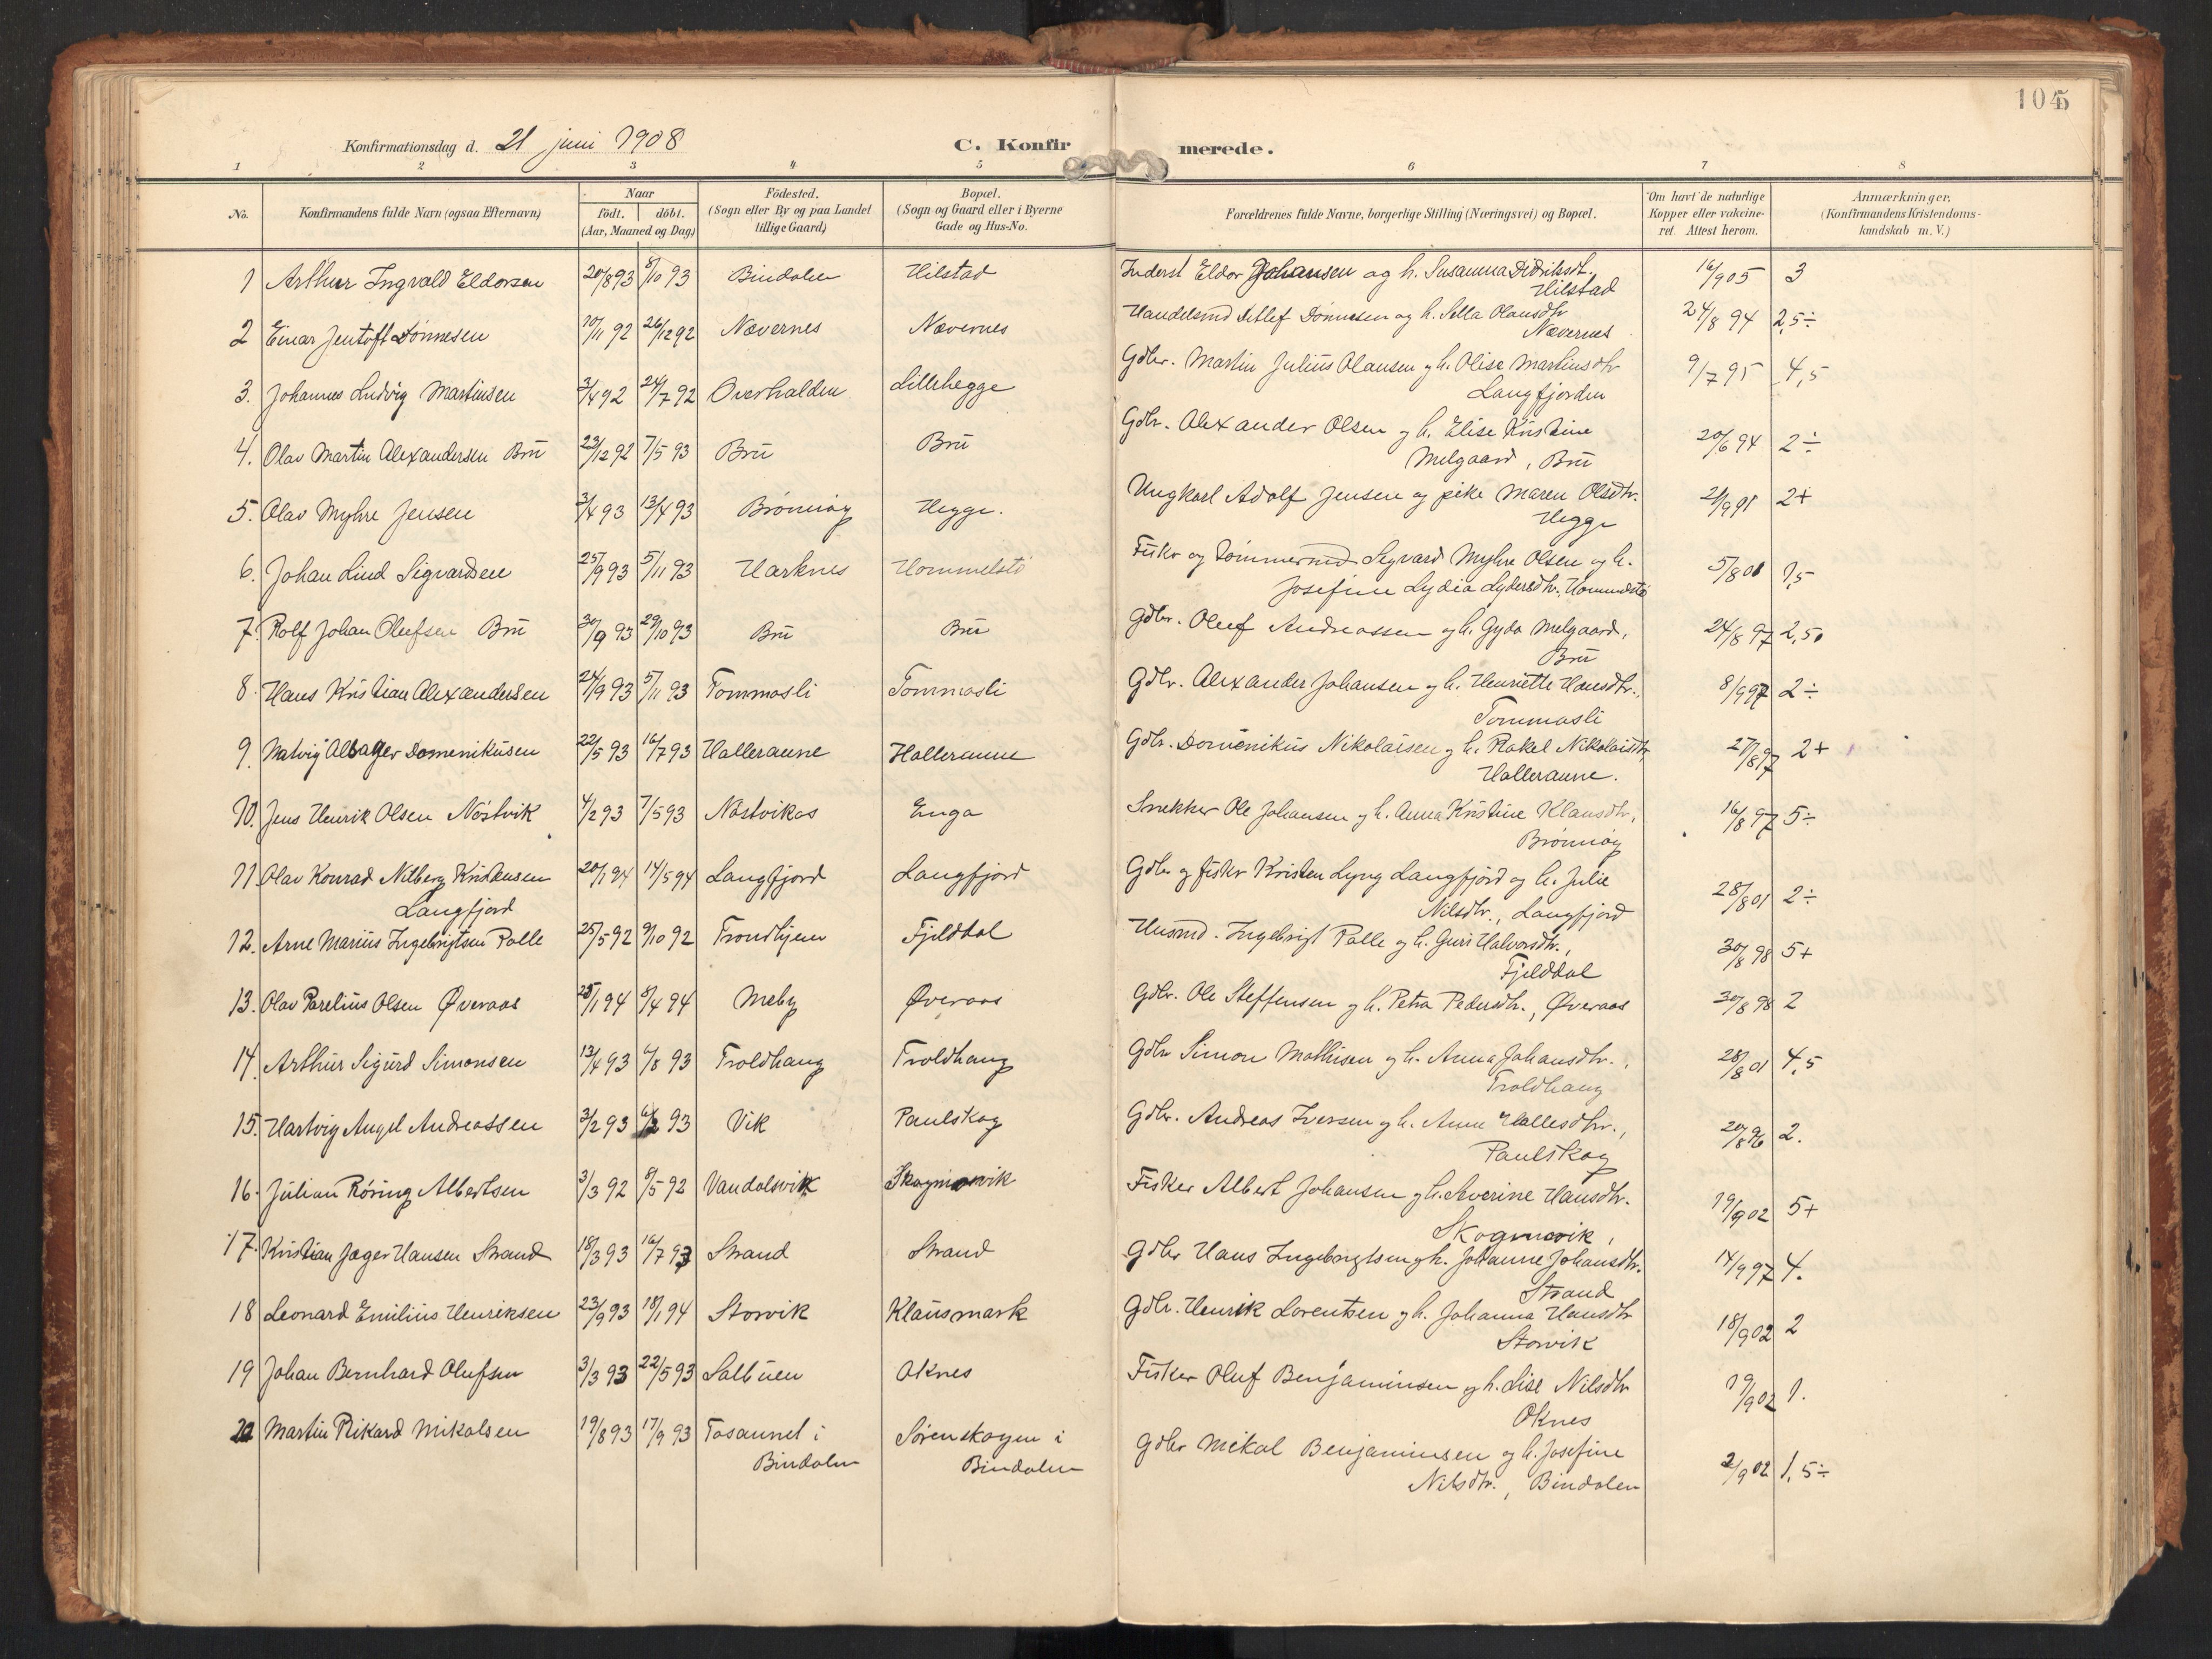 105
Konfirmationsdag d. 21 juni 1908
C. Konfirmerede.
1 2 3 4 5 6 7 8
No.
Konfirmandens fulde Navn (ogsaa Efternavn)
Naar
födt. döbt.
(Aar, Maaned og Dag)
Födested.
(Sogn eller By og paa Landet
tillige Gaard)
Bopæl.
(Sogn og Gaard eller i Byerne
Gade og Hus-No.
Forældrenes fulde Navne, borgerlige Stilling (Næringsvei) og Bopæl.
Om havt de naturlige
Kopper eller vakcine-
ret. Attest herom.
Anmærkninger.
(Konfirmandens Kristendoms-
kundskab m. V.)
1 Arthur Ingvald Eldorsen 20/8 93 8/10 93 Bindalen Hilstad Inderst Eldor Johansen og h. Susanna Didriksdt. 16/9 05 3
Hilstad
2 Einar Jentoft Dønnesen 10/11 92 26/12 92 Nævernes Nævernes Handelsmd Detlef Dønnesen og h. Sella Olausdtr 24/8 94 2,5÷
Nævernes
3. Johannes Ludvig Martinsen 3/4 92 24/7 92 Overhalden Lillehegge Gdbr. Martin Julius Olausen g h. Olise Martinsdtr 9/7 95 4,5
Langfjorden
4. Olav Martin Alexandersen Brü 23/12 92 7/5 93 Brü Brü Gdbr. Alexander Olsen g h. Elise Kristine 20/6 94 2÷
Melgaard, Brü
5. Olav Myhre Jensen 3/4 93 13/4 93 Brönnöy Hegge. Ungkarl Adolf Jensen og pike Maren Olsdtr. 2/9 98 2+
Hegge
6. Johan Lind Sigvardsen 25/9 93 5/11 93 Harknes Hommelstö Fisker og Tømmermd Sigvard Myhre Olsen og h. 5/8 01 1,5
Josefine Lydia Lydersdtr., Hommelstö
7. Rolf Johan Olufsen Brü 30/9 93 29/10 93 Brü Brü Gdbr. Oluf Andreassen g h. Gyda Melgaard, 24/8 97 2,50
Brü
8. Hans Kristian Alexandersen 24/9 93 5/11 93 Tommasli Tommasli Gdbr. Alexander Johansen g h. Henriette Hansdtr., 8/9 97 2÷
Tommasli
9. Domenikusen 22/5 93 16/7 93 Halleraune Halleraune Gdbr. Domenikus Nikolaisen g h. Rakel Nikolaisdtr, 27/8 97 2+
Halleraune.
10. Jens Henrik Olsen Nöstvik 4/2 93 7/5 93 Nöstvikas Enga Snekker Ole Johansen g h. Anna Kristine Klausdtr, 16/8 97 5÷
Brönnöy
11 Olav Konrad Nilberg Kristiansen 20/1 94 14/5 94 Langfjord Langfjord Gdbr g fisker Kristen Lyng Langfjord og h. Julie 28/8 01 2÷
Langfjord Nilsdtr., Langfjord
12. Arne Marius Ingebrigtsen Palle 25/5 92 9/10 92 Trondhjem Fjeldtal Husmd. Ingebrigt Palle g h. Guri Halvorsdtr., 30/8 98 5+
Fjeldtal
13. Olav Parelius Olsen Øveraas 25/1 94 8/4 94 Meby Øveraas Gdbr. Ole Steffensen g h. Petra Pedersdtr., Øveraas 30/8 98 2
14. Arthur Sigurd Simonsen 13/4 93 6/8 93 Troldhaug Troldhaug Gdbr Simon Mathisen g h. Anna Johansdtr., 28/8 01 4,5
Troldhaug
15. Hartvig Angel Andreassen 3/2 93 93 Vik Paulskog Gdbr. Andreas Iversen g h. Anne Hallesdtr., 20/8 96 2.
Paulskog
16. Julian Röring Albertsen 3/3 92 8/5 92 Vandalsvik Skogmovik Fisker Albert Johansen g h. Severine Hansdtr. 19/9 02 5+
Skogmovik,
17. Kristian Jæger Hansen Strand 18/3 93 16/7 93 Strand Strand Gdbr Hans Ingebrigtsen g h. Johanne Johansdtr. 14/9 97 4.
Strand
18 Leonard Emilius Henriksen 23/9 93 18/1 94 Storvik Klausmark Gdbr. Henrik Lorentsen g h. Johanna Hansdtr 18/9 02 2
Storvik
19 Johan Bernhard Olufsen 3/3 93 22/5 93 Salbuen Oknes Fisker Oluf Benjaminsen g h. Lise Nilsdtr 19/9 02 1.
Oknes
20 Martin Rikard Mikalsen 19/8 93 17/9 93 Tosaunet i Sørenskogen i Gdbr Mikal Benjaminsen og h. Josefine 2/9 02 1,5÷
Bindalen Bindalen Nilsdtr., Bindalen